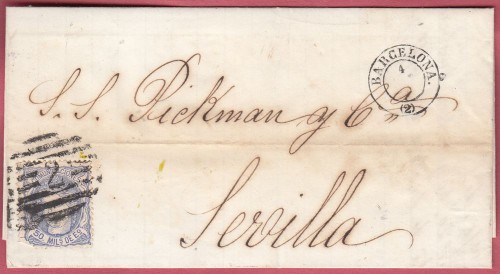 BARCELONA.
4
(2)
S. S. Pickman y Cª
Sevilla
50 MILS DE E.